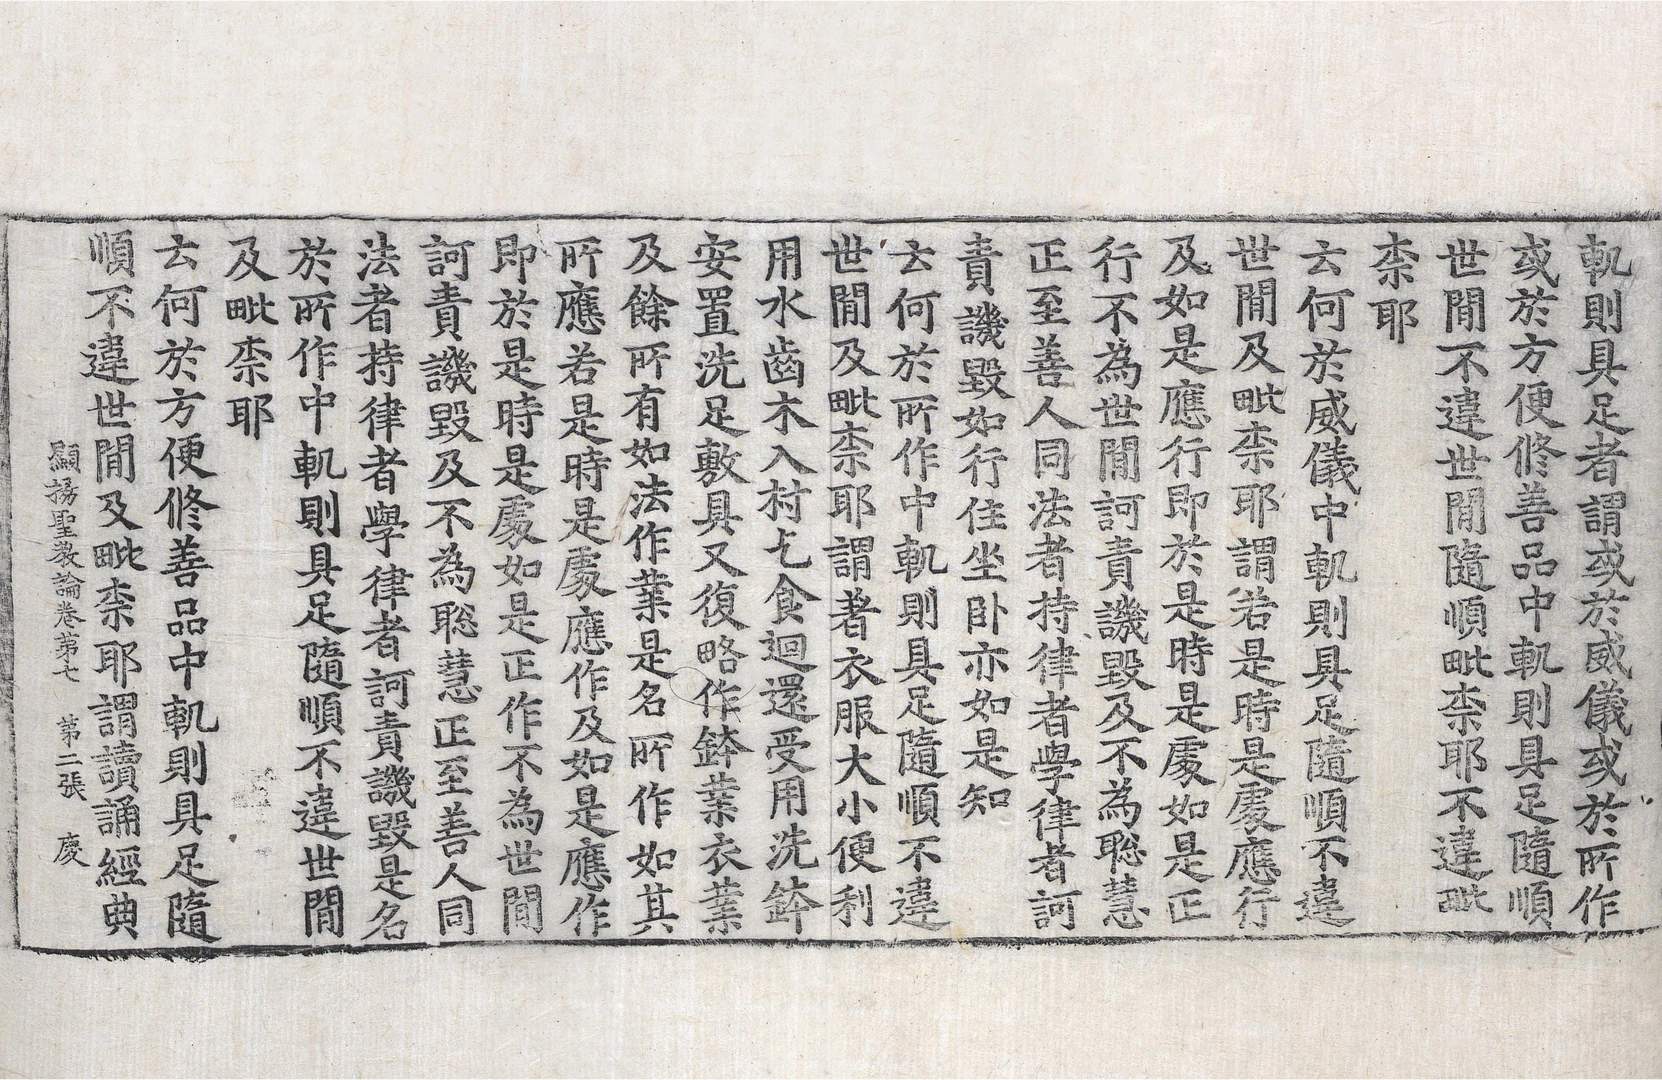 軌則具足者謂或於威儀或於所作
或於方便修善品中軌則具足隨順
世間不違世間隨順毗柰耶不違毗
柰耶
云何於威儀中軌則具足隨順不違
世間及毗柰耶謂若是時是處應行
及如是應行即於是時是處如是正
行不為世間訶責譏毀及不為聡慧
正至善人同法者持律者學律者訶
責譏毀如行住坐卧亦如是知
云何於所作中軌則具足隨順不違
世間及毗柰耶謂著衣服大小便利
用水齒木入村乞食迴還受用洗鉢
安置洗足敷具又復略作鉢葉衣葉
及餘所有如法作業是名所作如其
所應若是時是處應作及如是應作
即於是時是處如是正作不為世間
訶責譏毀及不為聡慧正至善人同
法者持律者學律者訶責譏毀是名
於所作中軌則具足隨順不違世間
及毗柰耶
云何於方便修善品中軌則具足隨
順不違世間及毗柰耶謂讀誦經典
顯揚聖教論卷第七 第二張 慶